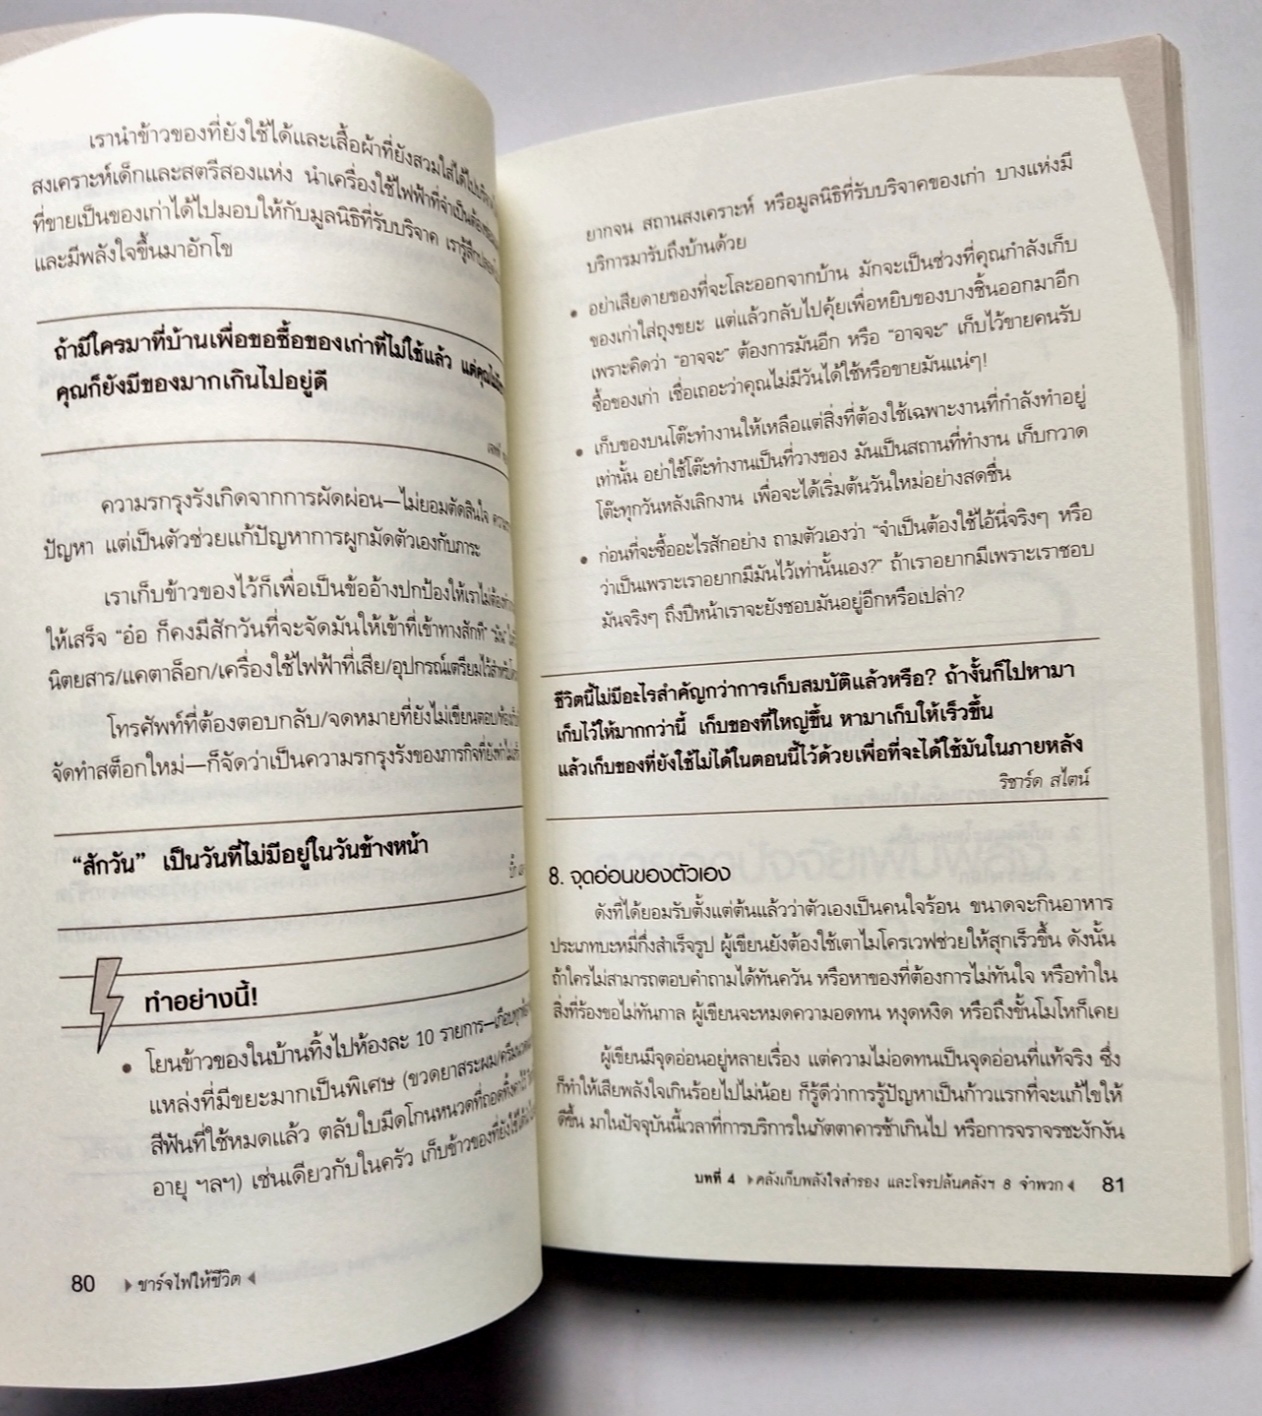 เรานำข้าวของที่ยังใช้ได้และเสื้อผ้าที่ยังสวมใส่ได้ไป
สงเคราะห์เด็กและสตรีสองแห่ง นำเครื่องใช้ไฟฟ้าที่จำเป็นต้อง
ที่ขายเป็นของเก่าได้ไปมอบให้กับมูลนิธิที่รับบริจาค เรารู้สึก
และมีพลังใจขึ้นมาอักโข
ถ้ามีใครมาที่บ้านเพื่อขอซื้อของเก่าที่ไม่ใช้แล้ว แต่คุณ
คุณก็ยังมีของมากเกินไปอยู่ดี
ความรกรุงรังเกิดจากการผัดผ่อน—ไม่ยอมตัดสินใจ
ปัญหา แต่เป็นตัวช่วยแก้ปัญหาการผูกมัดตัวเองกับภาระ
เราเก็บข้าวของไว้ก็เพื่อเป็นข้ออ้างปกป้องให้เราไม่ต้อง
ให้เสร็จ “อ๋อ ก็คงมีสักวันที่จะจัดมันให้เข้าที่เข้าทางสักที” “มัน”
นิตยสาร/แคตาล็อก/เครื่องใช้ไฟฟ้าที่เสีย/อุปกรณ์เตรียมไว้สำหรับ
โทรศัพท์ที่ต้องตอบกลับ/จดหมายที่ยังไม่เขียนตอบ
จัดทำสต็อกใหม่—ก็จัดว่าเป็นความรกรุงรังของภารกิจที่ยัง
“สักวัน” เป็นวันที่ไม่มีอยู่ในวันข้างหน้า
ทำอย่างนี้!
• โยนข้าวของในบ้านทิ้งไปห้องละ 10 รายการ—เกือบทุก
แหล่งที่มีขยะมากเป็นพิเศษ (ขวดยาสระผม/ครีมนวด
สีฟันที่ใช้หมดแล้ว ตลับใบมีดโกนหนวดที่ถอดทิ้งคาไว้
อายุ ฯลฯ) เช่นเดียวกับในครัว เก็บข้าวของที่ยังใช้ได้
80 ชาร์จไฟให้ชีวิต
ยากจน สถานสงเคราะห์ หรือมูลนิธิที่รับบริจาคของเก่า บางแห่งมี
บริการมารับถึงบ้านด้วย
• อย่าเสียดายของที่จะโละออกจากบ้าน มักจะเป็นช่วงที่คุณกำลังเก็บ
ของเก่าใส่ถุงขยะ แต่แล้วกลับไปคุ้ยเพื่อหยิบของบางชิ้นออกมาอีก
เพราะคิดว่า “อาจจะ” ต้องการมันอีก หรือ “อาจจะ” เก็บไว้ขายคนรับ
ซื้อของเก่า เชื่อเถอะว่าคุณไม่มีวันได้ใช้หรือขายมันแน่ๆ!
• เก็บของบนโต๊ะทำงานให้เหลือแต่สิ่งที่ต้องใช้เฉพาะงานที่กำลังทำอยู่
เท่านั้น อย่าใช้โต๊ะทำงานเป็นที่วางของ มันเป็นสถานที่ทำงาน เก็บกวาด
โต๊ะทุกวันหลังเลิกงาน เพื่อจะได้เริ่มต้นวันใหม่อย่างสดชื่น
• ก่อนที่จะซื้ออะไรสักอย่าง ถามตัวเองว่า “จำเป็นต้องใช้ไอ้นี่จริงๆ หรือ
ว่าเป็นเพราะเราอยากมีมันไว้เท่านั้นเอง?” ถ้าเราอยากมีเพราะเราชอบ
มันจริงๆ ถึงปีหน้าเราจะยังชอบมันอยู่อีกหรือเปล่า?
ชีวิตนี้ไม่มีอะไรสำคัญกว่าการเก็บสมบัติแล้วหรือ? ถ้างั้นก็ไปหามา
เก็บไว้ให้มากกว่านี้ เก็บของที่ใหญ่ขึ้น หามาเก็บให้เร็วขึ้น
แล้วเก็บของที่ยังใช้ไม่ได้ในตอนนี้ไว้ด้วยเพื่อที่จะได้ใช้มันในภายหลัง
ริชาร์ด สไตน์
8. จุดอ่อนของตัวเอง
ดังที่ได้ยอมรับตั้งแต่ต้นแล้วว่าตัวเองเป็นคนใจร้อน ขนาดจะกินอาหาร
ประเภทบะหมี่กึ่งสำเร็จรูป ผู้เขียนยังต้องใช้เตาไมโครเวฟช่วยให้สุกเร็วขึ้น ดังนั้น
ถ้าใครไม่สามารถตอบคำถามได้ทันควัน หรือหาของที่ต้องการไม่ทันใจ หรือทำใน
สิ่งที่ร้องขอไม่ทันกาล ผู้เขียนจะหมดความอดทน หงุดหงิด หรือถึงขั้นโมโหก็เคย
ผู้เขียนมีจุดอ่อนอยู่หลายเรื่อง แต่ความไม่อดทนเป็นจุดอ่อนที่แท้จริง ซึ่ง
ก็ทำให้เสียพลังใจเกินร้อยไปไม่น้อย ก็รู้ดีว่าการรู้ปัญหาเป็นก้าวแรกที่จะแก้ไขให้
ดีขึ้น มาในปัจจุบันนี้เวลาที่การบริการในภัตตาคารช้าเกินไป หรือการจราจรชะงักงัน
บทที่ 4 คลังเก็บพลังใจสำรอง และโจรปล้นคลังฯ 8 จำพวก 81